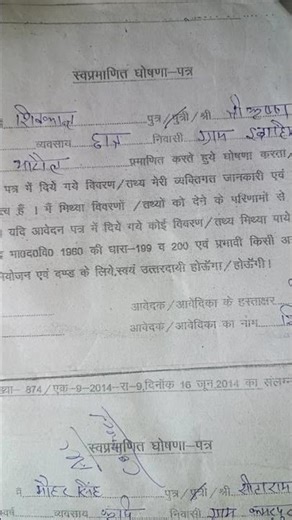 स्वप्रमाणित घोषणा-पत्र
शिवकान्त पुत्र/पुत्री/श्री श्री कृष्ण
व्यवसाय छात्र निवासी ग्राम
प्रमाणित करते हुये घोषणा करता/
पत्र में दिये गये विवरण/तथ्य मेरी व्यक्तिगत जानकारी एवं
हैं । मैं मिथ्या विवरणों /तथ्यों को देने के परिणामों से
यदि आवेदन पत्र में दिये गये कोई विवरण/तथ्य मिथ्या पाये
भा०द०वि० 1960 की धारा-199 व 200 एवं प्रभावी किसी अ
योजन एवं दण्ड के लिये,स्वयं उत्तरदायी होऊँगा/होऊँगी!
आवेदक/आवेदिका के हस्ताक्षर
आवेदक/आवेदिका का नाम
ख्या- 874/एक-9-2014-रा-9,दिनांक 16 जून,2014 का संलग्न
स्वप्रमाणित घोषणा-पत्र
मै मोहर सिंह पुत्र/पुत्री/श्री सीताराम
व्यवसाय कृषि निवासी ग्राम